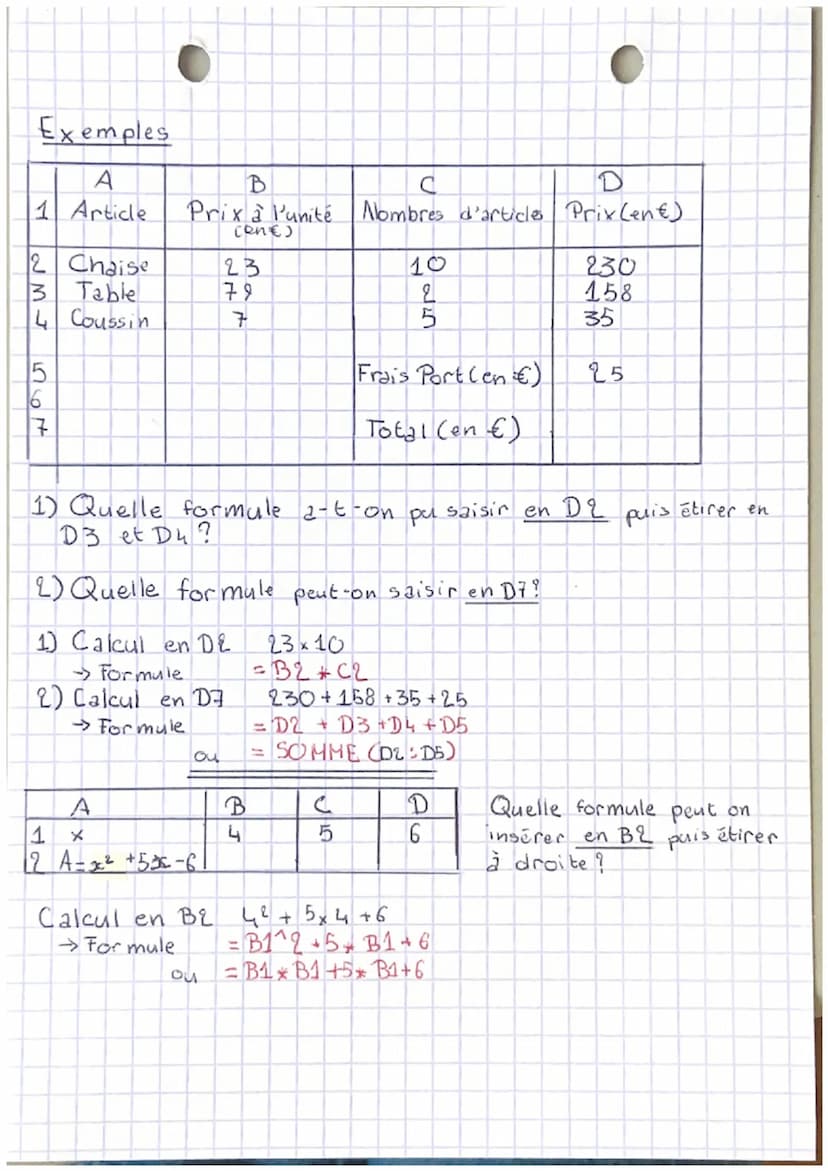 Exemples
A B C D
1 Article Prix à l'unité (en €) Nombres d'articles Prix (en €)
2 Chaise 23 10 230
3 Table 79 2 158
4 Coussin 7 5 35
5 Frais Port (en €) 25
6
7 Total (en €)
1) Quelle formule a-t-on pu saisir en D2 puis étirer en
D3 et D4 ?
2) Quelle formule peut-on saisir en D7 ?
1) Calcul en D2 23 x 10
→ Formule = B2 * C2
2) Calcul en D7 230 + 158 + 35 + 25
→ Formule = D2 + D3 + D4 + D5
ou = SOMME (D2 : D5)
A B C D
1 x 4 5 6
2 A = x² + 5x - 6
Quelle formule peut on
insérer en B2 puis étirer
à droite ?
Calcul en B2 4² + 5 x 4 + 6
→ Formule = B1^2 + 5 * B1 + 6
ou = B1 * B1 + 5 * B1 + 6